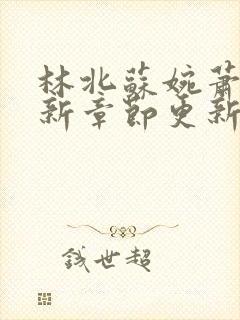 林北蘇婉蕭
新章節更新
錢世超